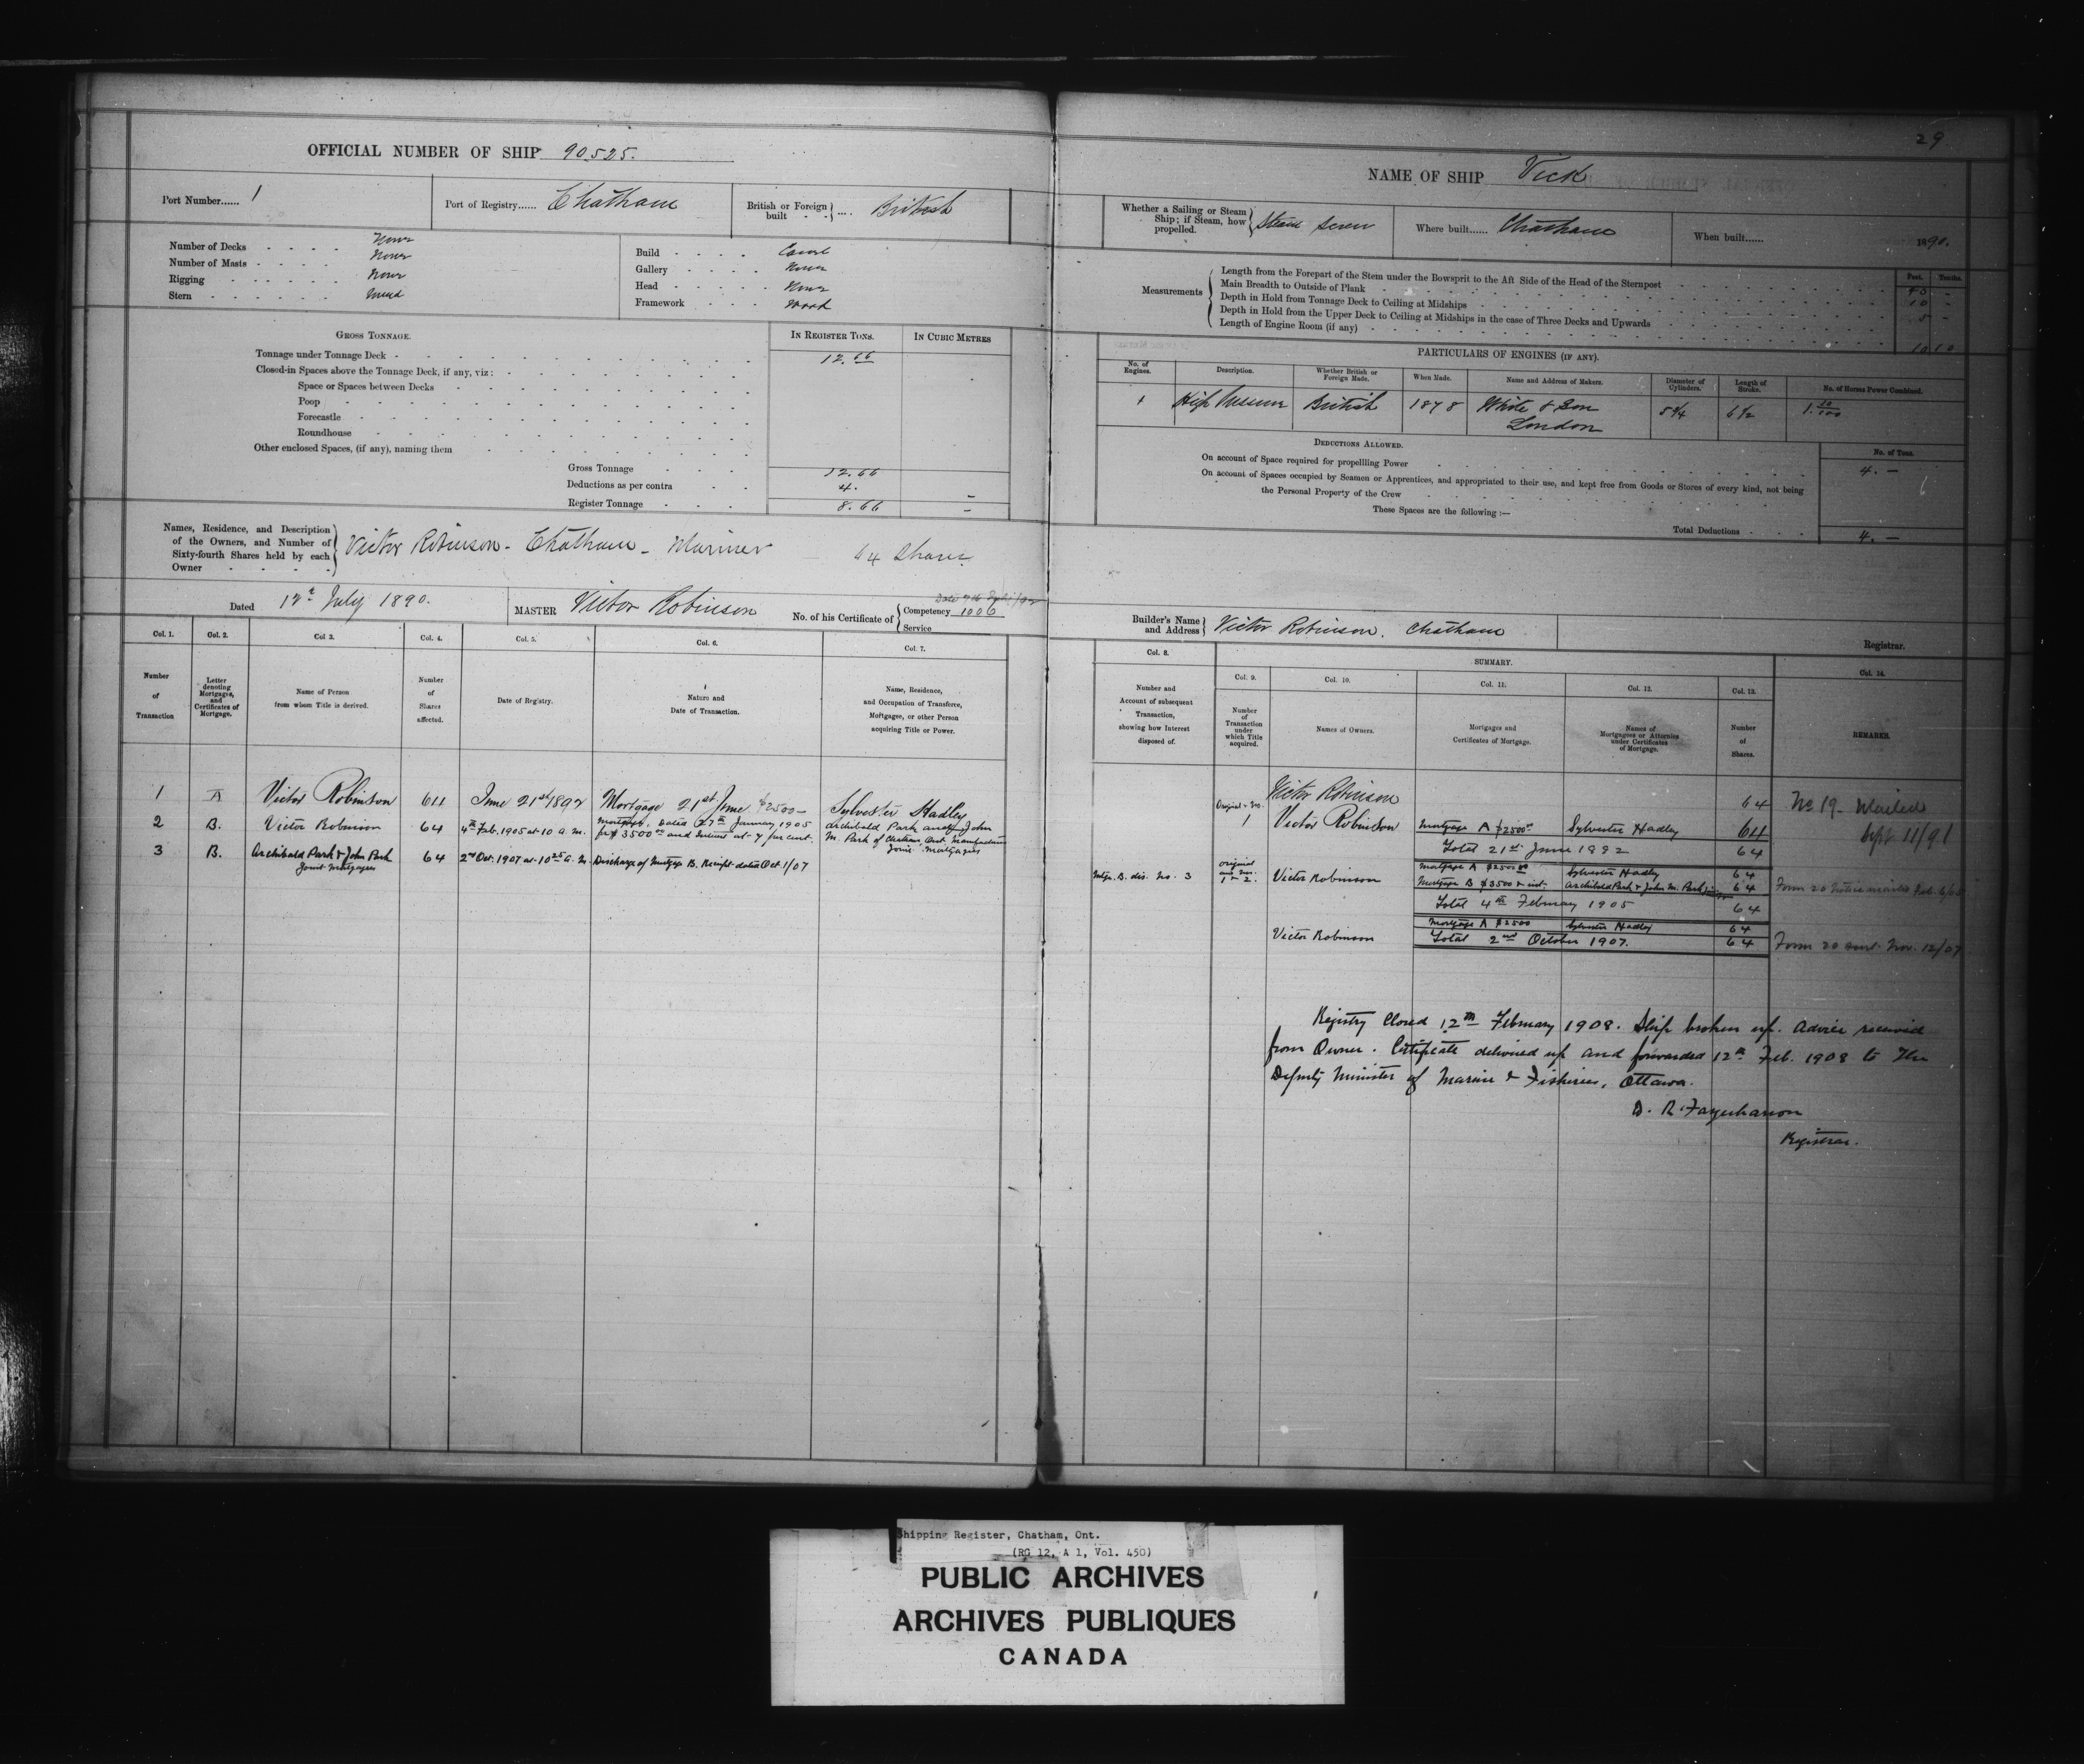 29
OFFICIAL NUMBER OF SHIP 90525.
NAME OF SHIP Vick
Port Number...... 1
Port of Registry...... Chatham
British or Foreign built .... British
Whether a Sailing or Steam Ship; if Steam, how propelled. Steam Screw
Where built...... Chatham
When built...... 1890.
Number of Decks None
Number of Masts None
Rigging None
Stern
Build
Gallery None
Head None
Framework Wood
Measurements
Feet. Tenths.
Length from the Forepart of the Stem under the Bowsprit to the Aft Side of the Head of the Sternpost
Main Breadth to Outside of Plank 10 -
Depth in Hold from Tonnage Deck to Ceiling at Midships 5 -
Depth in Hold from the Upper Deck to Ceiling at Midships in the case of Three Decks and Upwards
Length of Engine Room (if any) 10 10
GROSS TONNAGE.
IN REGISTER TONS.
IN CUBIC METRES
Tonnage under Tonnage Deck - 12.66
Closed-in Spaces above the Tonnage Deck, if any, viz:
Space or Spaces between Decks
Poop
Forecastle
Roundhouse
Other enclosed Spaces, (if any), naming them
Gross Tonnage 12.66
Deductions as per contra 4. -
Register Tonnage 8.66 -
PARTICULARS OF ENGINES (IF ANY).
No. of Engines.
Description.
Whether British or Foreign Made.
When Made.
Name and Address of Makers.
Diameter of Cylinders.
Length of Stroke.
No. of Horses Power Combined.
1 High Pressure British 1878 White & Son London 5 3/4 6 1/2 1. 10/100
DEDUCTIONS ALLOWED.
No. of Tons.
On account of Space required for propellling Power 4. -
On account of Spaces occupied by Seamen or Apprentices, and appropriated to their use, and kept free from Goods or Stores of every kind, not being
the Personal Property of the Crew
These Spaces are the following :—
Total Deductions 4. -
Names, Residence, and Description of the Owners, and Number of Sixty-fourth Shares held by each Owner
Victor Robinson - Chatham - Mariner 64 Shares
Dated 12th July 1890.
MASTER Victor Robinson
No. of his Certificate of
Competency 1006
Service
Builder's Name and Address Victor Robinson. Chatham
Registrar.
Col. 1.
Col. 2.
Col 3.
Col. 4.
Col. 5.
Col. 6.
Col. 7.
Number of Transaction
Letter denoting Mortgages, and Certificates of Mortgage.
Name of Person from whom Title is derived.
Number of Shares affected.
Date of Registry.
Nature and Date of Transaction.
Name, Residence, and Occupation of Transferee, Mortgagee, or other Person acquiring Title or Power.
1 A Victor Robinson 64 June 21st 1892 Mortgage 21st June $2500- Sylvester Hadley
2 B. Victor Robinson 64 4th Feb. 1905 at 10 a.m. Mortgage, Dated 27th January 1905
for $3500 00 and Interest at 7 per cent. Archibald Park and John
M. Park of Chatham, Ont. Manufacturers
Joint Mortgagees
3 B. Archibald Park & John Park 64 2nd Oct. 1907 at 10 25 a.m. Discharge of Mortgage B. Receipt dated Oct. 1/07
Joint Mortgagees
Col. 8.
SUMMARY.
Col. 9.
Col. 10.
Col. 11.
Col. 12.
Col. 13.
Col. 14.
Number and Account of subsequent Transaction, showing how Interest disposed of.
Number of Transaction under which Title acquired.
Names of Owners.
Mortgages and Certificates of Mortgage.
Names of Mortgagees or Attornies under Certificates of Mortgage.
Number of Shares.
REMARKS.
Victor Robinson 64 No 19 - Mailed
Sept 11/91
Original & No. 1 Victor Robinson Mortgage A $2500 00 Sylvester Hadley 64
Total 21st June 1892 64
Mtge. B. dis. No. 3 original and No. 1 & 2. Victor Robinson Mortgage A $2500 00 Sylvester Hadley 64
Mortgage B $3500 & int. Archibald Park & John M. Park 64 Form 20 notice mailed Feb. 6/05
Total 4th February 1905 64
Mortgage A $2500 Sylvester Hadley 64
Victor Robinson Total 2nd October 1907. 64 Form 20 sent Nov. 12/07
Registry Closed 12th February 1908. Ship broken up. Advice received
from Owner. Certificate delivered up and forwarded 12th Feb. 1908 to the
Deputy Minister of Marine & Fisheries, Ottawa.
D. R. Farquharson
Registrar.
Shipping Register, Chatham, Ont.
(RG 12, A 1, Vol. 450)
PUBLIC ARCHIVES
ARCHIVES PUBLIQUES
CANADA